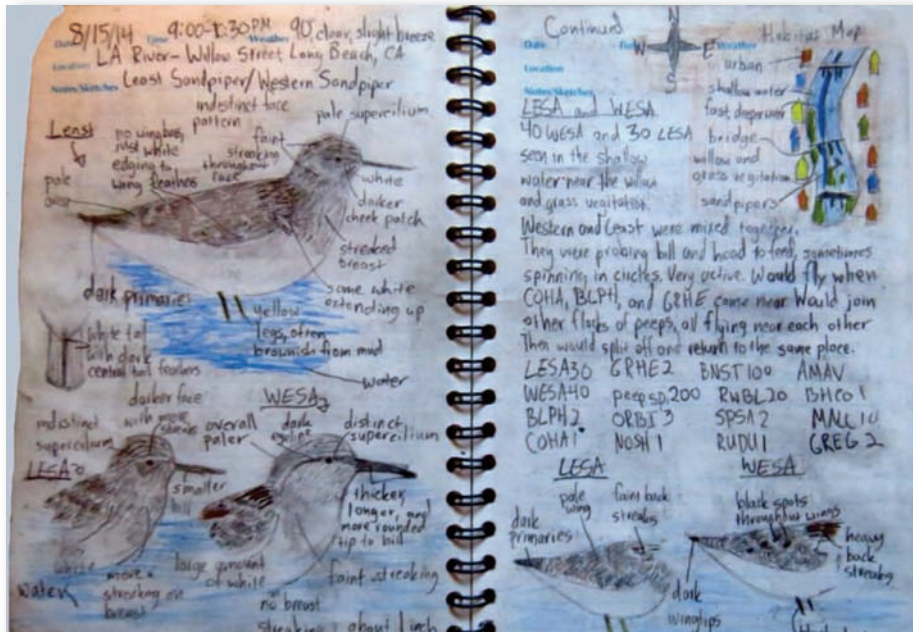 Date 8/15/14 Time 9:00-10:30PM Weather 90°, clear, slight breeze
Location LA River- Willow Street Long Beach, CA
Notes/Sketches Least Sandpiper/Western Sandpiper
indistinct face
pattern
pale supercilium
Least
no wing bars,
just white
edging to
wing feathers
faint
streaking
throughout
face
pale
white
darker
cheek patch
streaked
breast
some white
extending up
dark primaries
yellow
legs, often
brownish from mud
water
White tail
with dark
central tail feathers
darker face
with more
indistinct
supercilium
LESA
smaller
bill
white
more
streaking on
breast
water
WESA
overall
paler
dark
distinct
supercilium
thicker,
longer, and
more rounded
tip to bill
large amount
of white
faint streaking
no breast
streaking
about 1 inch
Continued
Date
Weather
Location
Notes/Sketches
N
W E
S
Habitat Map
urban
shallow water
fast, deep river
bridge
willow and
grass vegitation
sandpipers
LESA and WESA
40 WESA and 30 LESA
seen in the shallow
water near the willow
and grass vegitation.
Western and Least were mixed together.
They were probing bill and head to feed, sometimes
spinning in circles. Very active. Would fly when
COHA, BLPH, and GRHE came near. Would join
other flocks of peeps, all flying near each other
Then would split off and return to the same place.
LESA 30 GRHE 2 BNST 100 AMAV
WESA 40 peep sp. 200 RWBL 20 BHCO 1
BLPH 2 ORBI 3 SPSA 2 MALL 10
COHA 1 NOSH 1 RUDU 1 GREG 2
LESA
dark
primaries
pale
wing
faint back
streaks
WESA
black spots
throughout wings
heavy
back
streaks
dark
wingtips